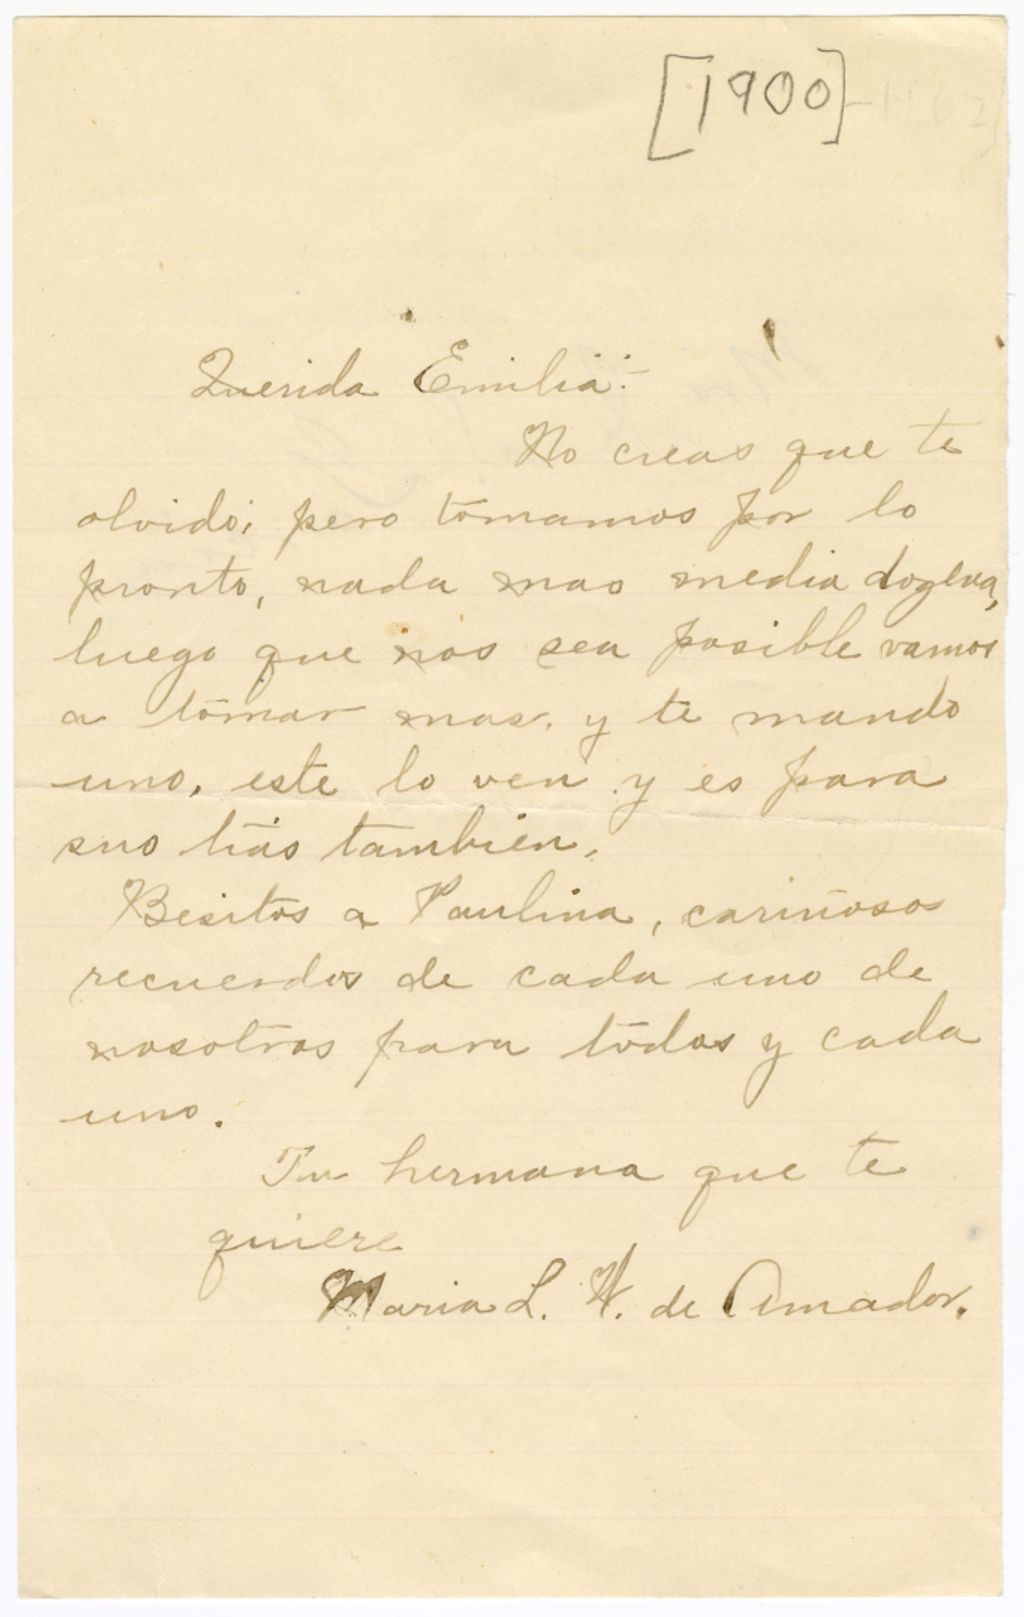 [1900]
Querida Emilia:-
No creas que te
olvido; pero tomamos por lo
pronto, nada mas media dogena,
luego que nos sea posible vamos
a tomar mas. y te mando
uno, este lo ven y es para
sus tias tambien.
Besitos a Paulina, cariñosos
recuerdos de cada uno de
nosotros para todos y cada
uno.
Tu hermana que te
quiere
Maria L. H. de Amador.